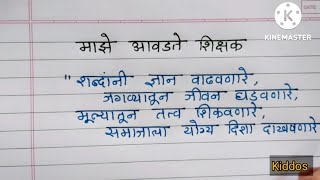 DATE
KINEMASTER
माझे आवडते शिक्षक
"शब्दांनी ज्ञान वाढवणारे,
जगण्यातून जीवन घडवणारे,
मूल्यातून तत्व शिकवणारे,
समाजाला योग्य दिशा दाखवणारे
Kiddos